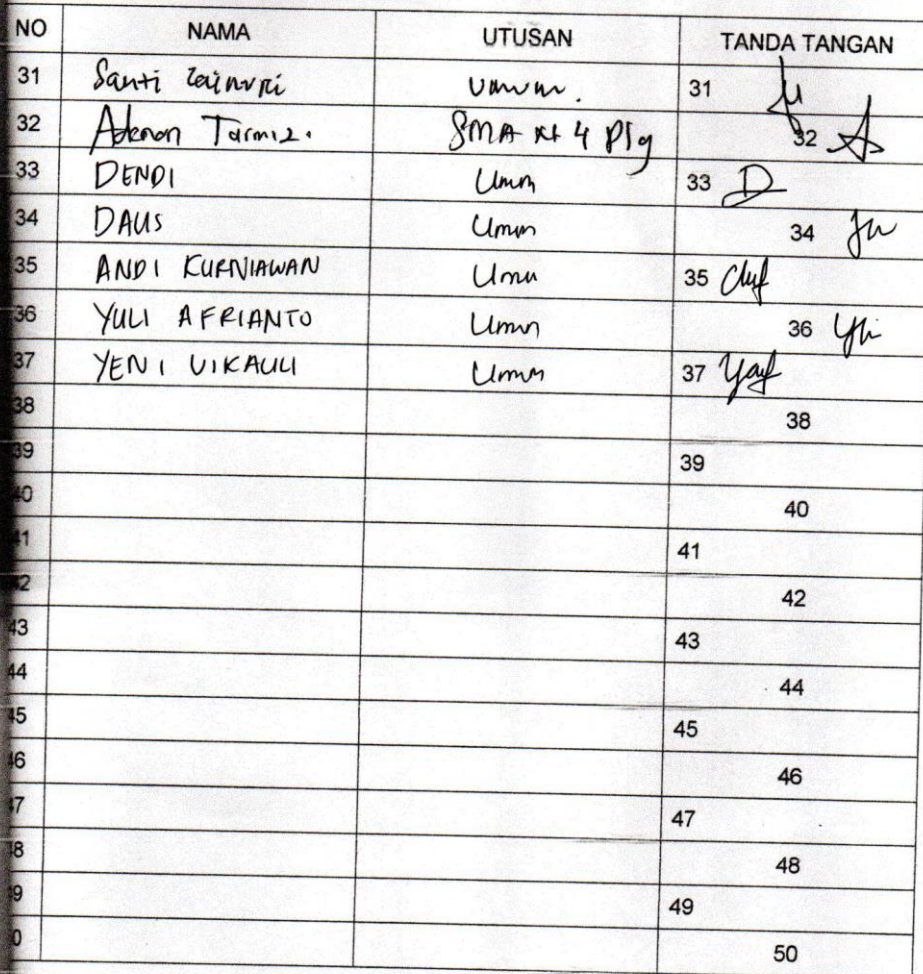 NO NAMA UTUSAN TANDA TANGAN
31 Santi Umum. 31
32 Tarmiz. SMA 4 Plg 32
33 DENDI Umm 33 D
34 DAUS Umm 34
35 ANDI KURNIAWAN Umu 35
36 YULI AFRIANTO Umm 36
37 YENI VIKAULI Umm 37
38 38
39 39
40 40
41 41
42 42
43 43
44 44
45 45
46 46
47 47
48 48
49 49
50 50